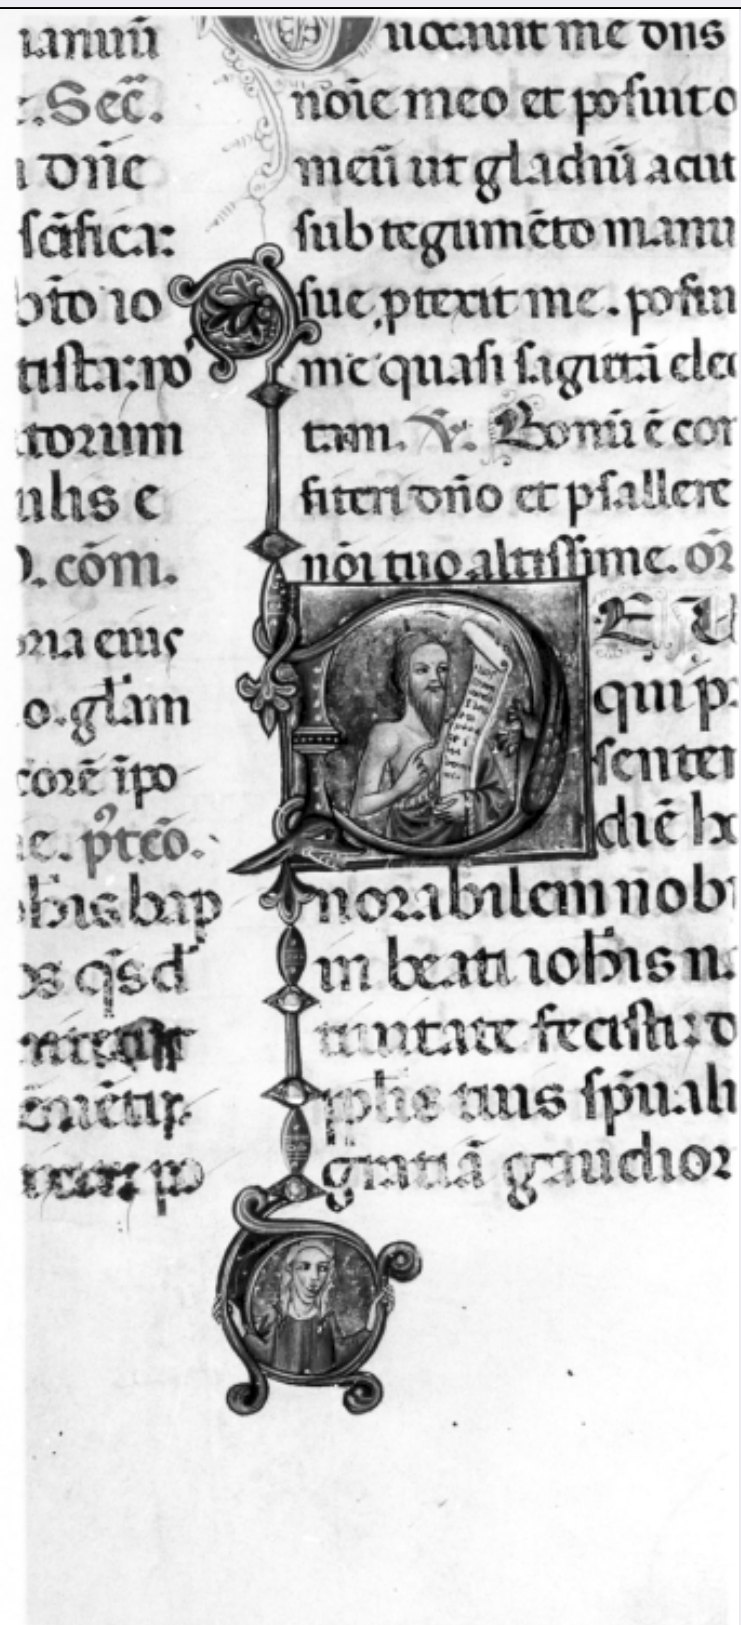 ianuū
Sec̄.
dn̄e
sc̄ifica:
bto io
tista:
torum
ulis e
cōm.
ria eius
o. gl̄am
core īpo
e. p̾tcō.
oh̄is bap
os q̄s d
po
Uocauit me dn̄s
noīe meo et posuit o
meū ut gladiū acut
sub tegumēto manu
sue ptexit me. posui
me quasi sagittā elec
tam. V̄. Bonū ē con
fiteri dn̄o et psallere
nōi tuo altissime. or̄
D EU
qui p
senten
diē h
norabilem nobi
in beati ioh̄is n
tiuitate fecisti: d
ip̄l̄is tuis sp̄uali
gratiā gaudior